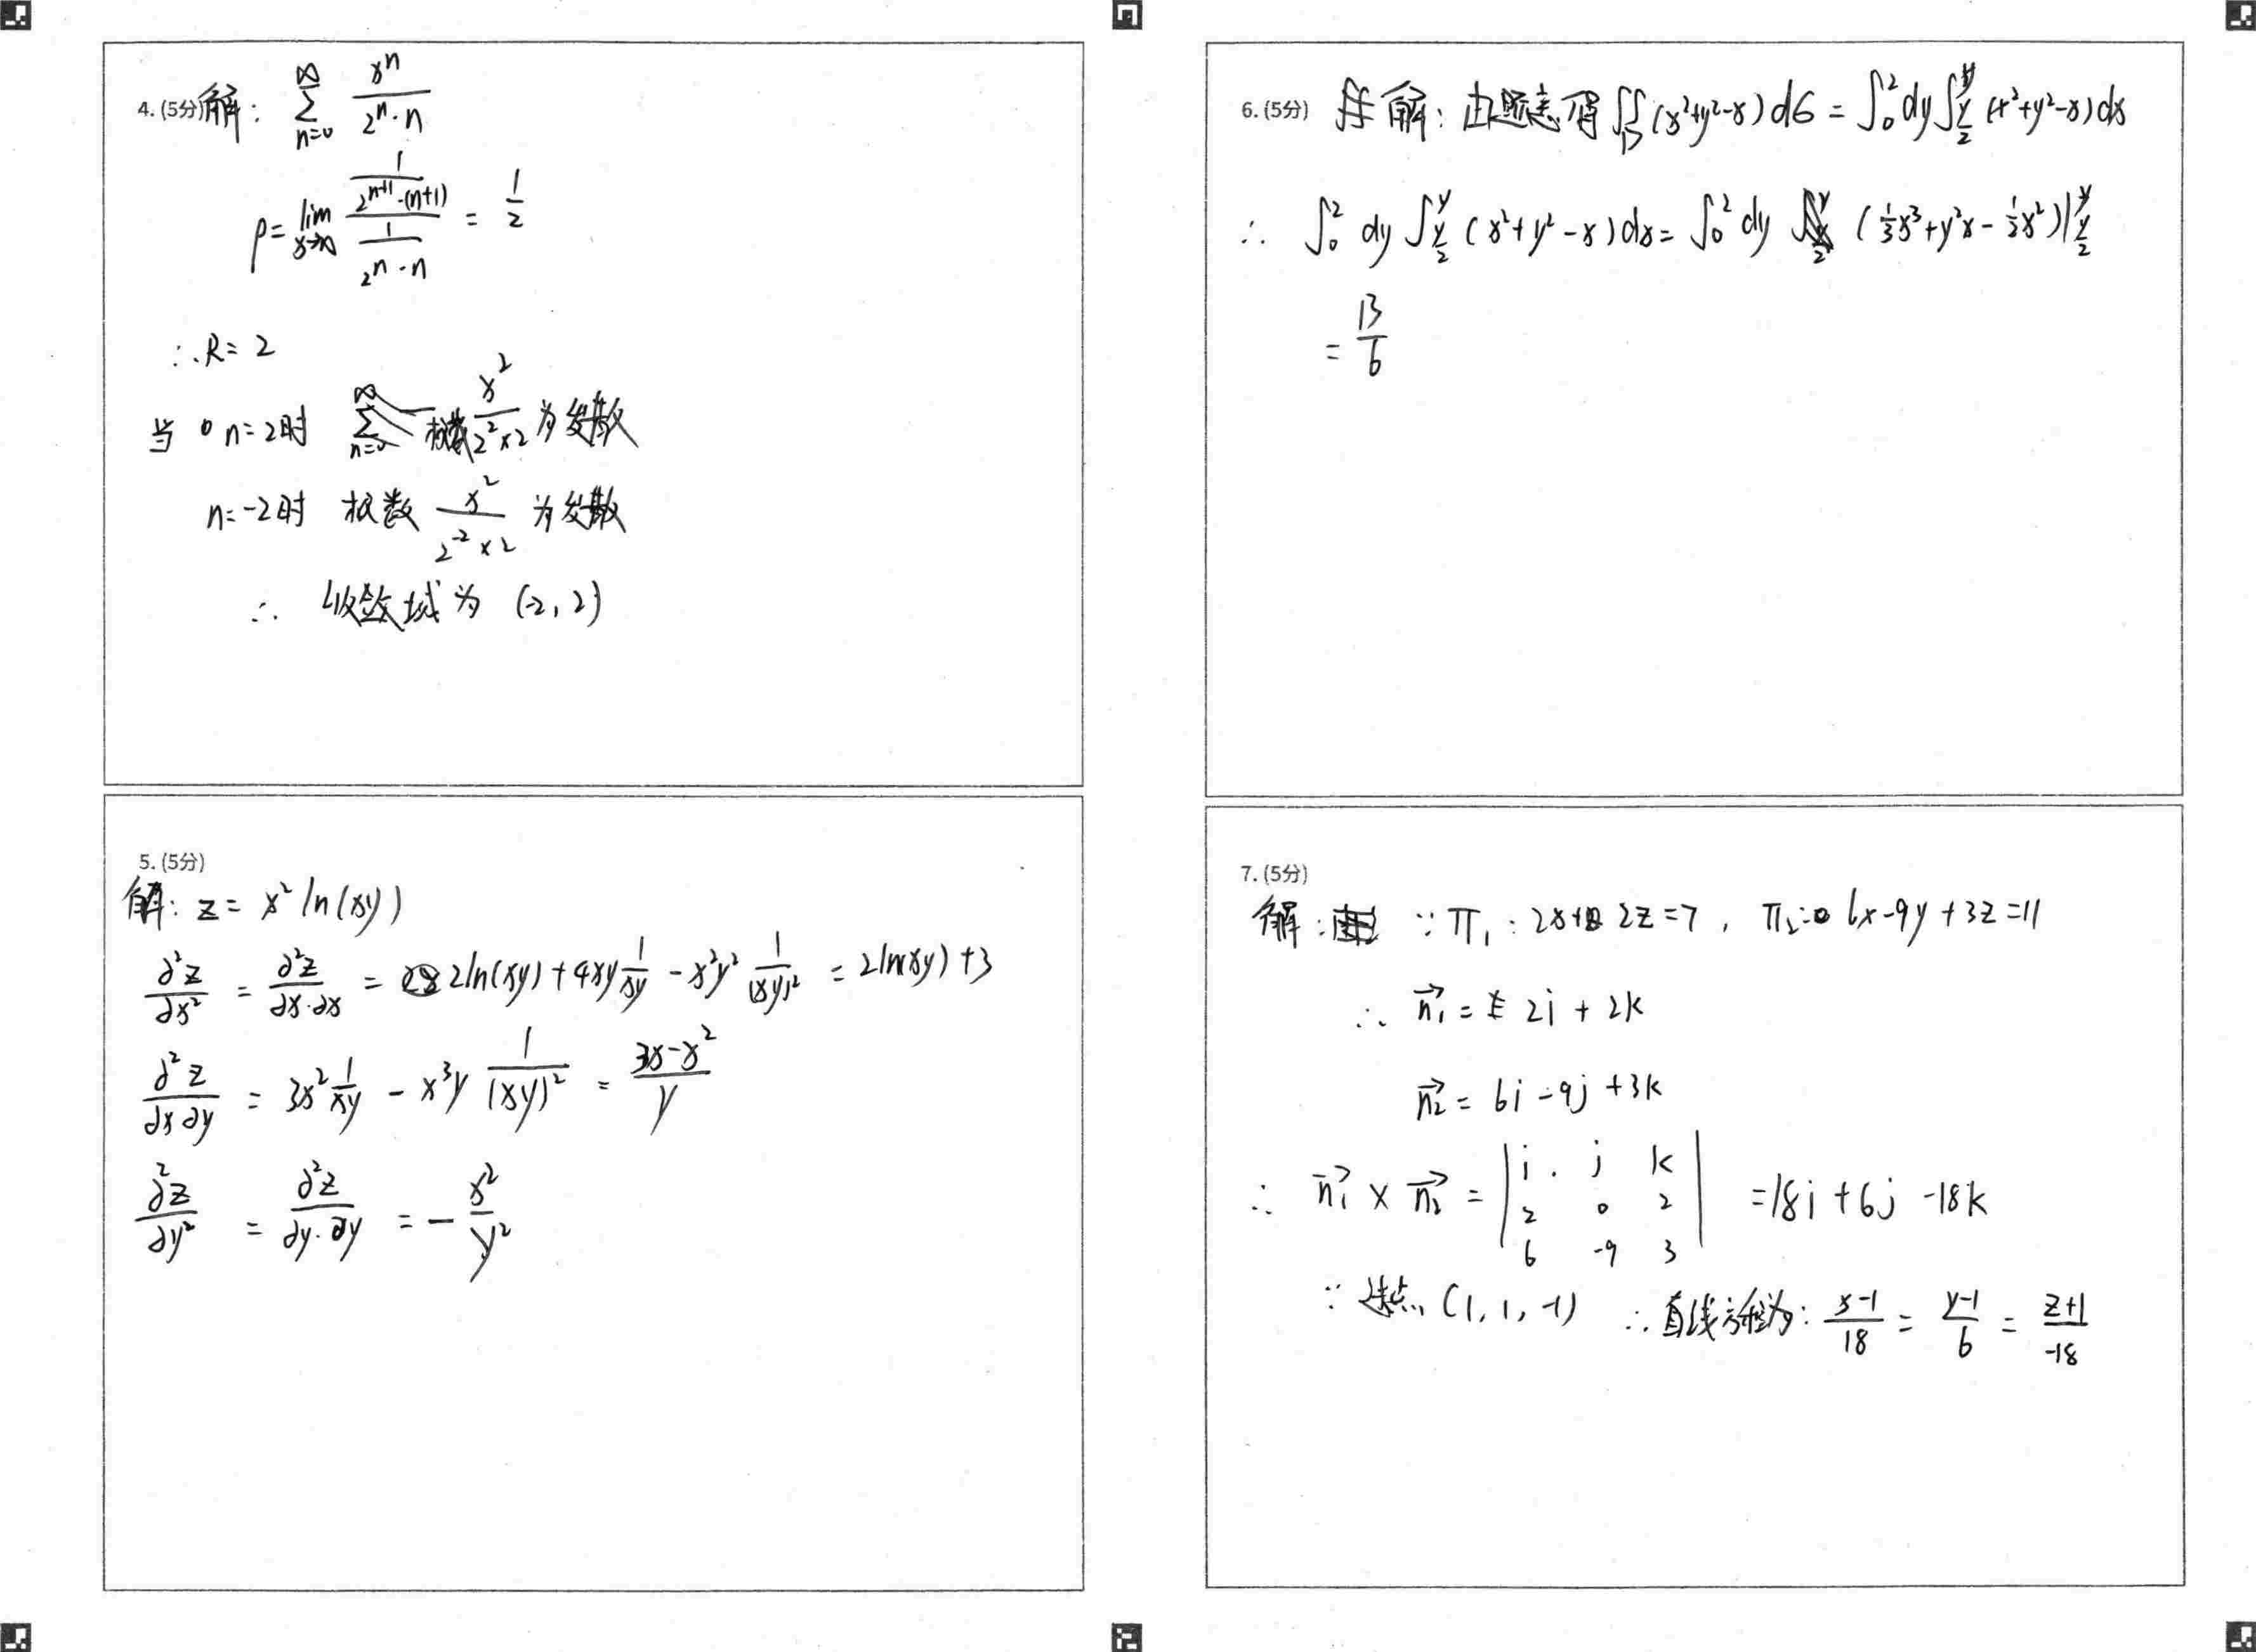 4. (5分) 解: ∑_{n=0}^{∞} x^n/(2^n·n)
ρ = lim_{x→∞} (1/(2^{n+1}·(n+1)))/(1/(2^n·n)) = 1/2
∴ R = 2
当 n=2时 x^2/(2^2×2) 为发散
n=-2时 级数 x^2/(2^{-2}×2) 为发散
∴ 收敛域为 (-2, 2)
5. (5分)
解: z = x^2 ln(xy)
∂^2z/∂x^2 = ∂^2z/(∂x·∂x) = 2ln(xy) + 4xy 1/(xy) - x^2y^2 1/(xy)^2 = 2ln(xy) + 3
∂^2z/(∂x∂y) = 3x^2 1/(xy) - x^3y 1/(xy)^2 = (3x-x^2)/y
∂^2z/∂y^2 = ∂^2z/(∂y·∂y) = - x^2/y^2
6. (5分) 解: 由题意得 ∬_D (x^2+y^2-x)dσ = ∫_0^2 dy ∫_{y/2}^{y} (x^2+y^2-x)dx
∴ ∫_0^2 dy ∫_{y/2}^{y} (x^2+y^2-x)dx = ∫_0^2 dy (1/3 x^3+y^2x - 1/2 x^2)|_{y/2}^{y}
= 13/6
7. (5分)
解: ∵ π_1: 2x+2z=7, π_2: 6x-9y+3z=11
∴ n_1 = 2i + 2k
n_2 = 6i -9j +3k
∴ n_1 × n_2 = |i j k; 2 0 2; 6 -9 3| = 18i + 6j - 18k
∵ 过点 (1, 1, -1) ∴ 直线方程为: (x-1)/18 = (y-1)/6 = (z+1)/-18